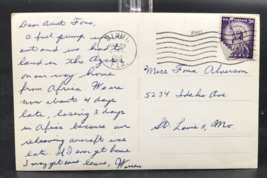 Dear Aunt Fona,
a fuel pump went
out and we had to
land in the Azores
on our way home
from Africa. We are
now about 4 days
late, losing 3 days
in Africa because our
relieving aircraft was
late. If I ever get home
I may get some leave, Warren
Miss Fona Alverson
5234 Idaho Ave
St. Louis, Mo.
FLA.